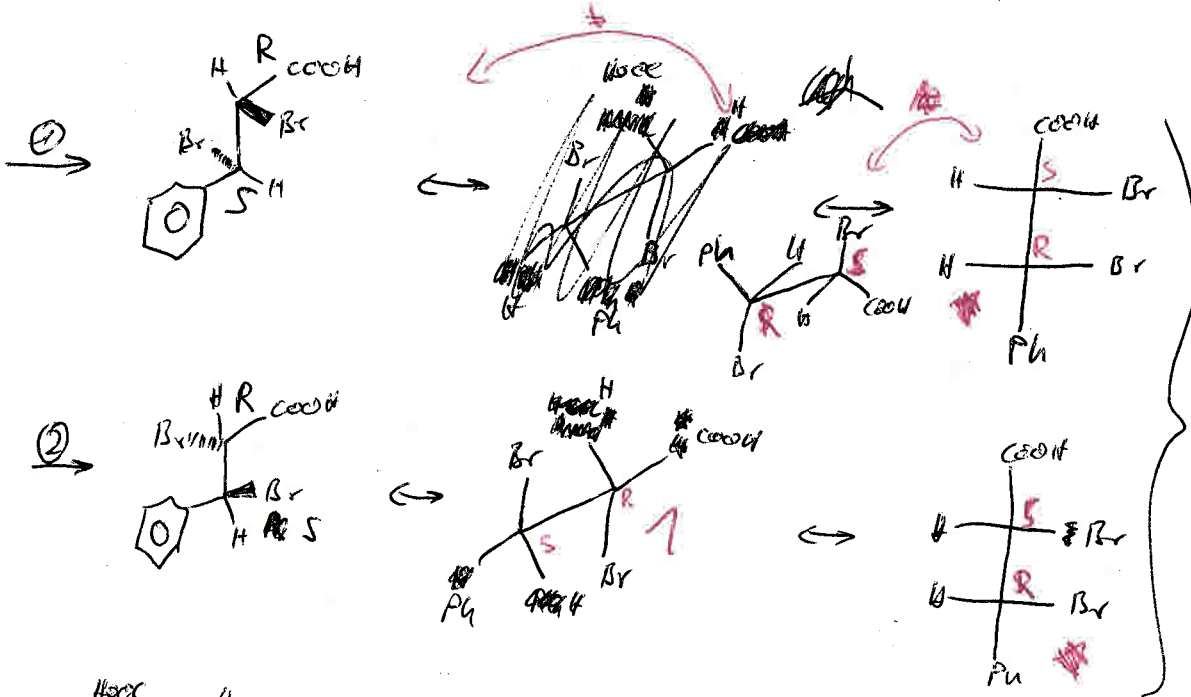 ①
H R COOH
Br
Br
H
S
HOOC
H
Br
Br
H
Ph
Ph
H
Br
S
R
H
COOH
Br
COOH
S
H Br
R
H Br
Ph
②
H R COOH
Br
Br
H S
H
Br
COOH
R
S
1
Ph
H
Br
COOH
S
H Br
R
H Br
Ph
HOOC H